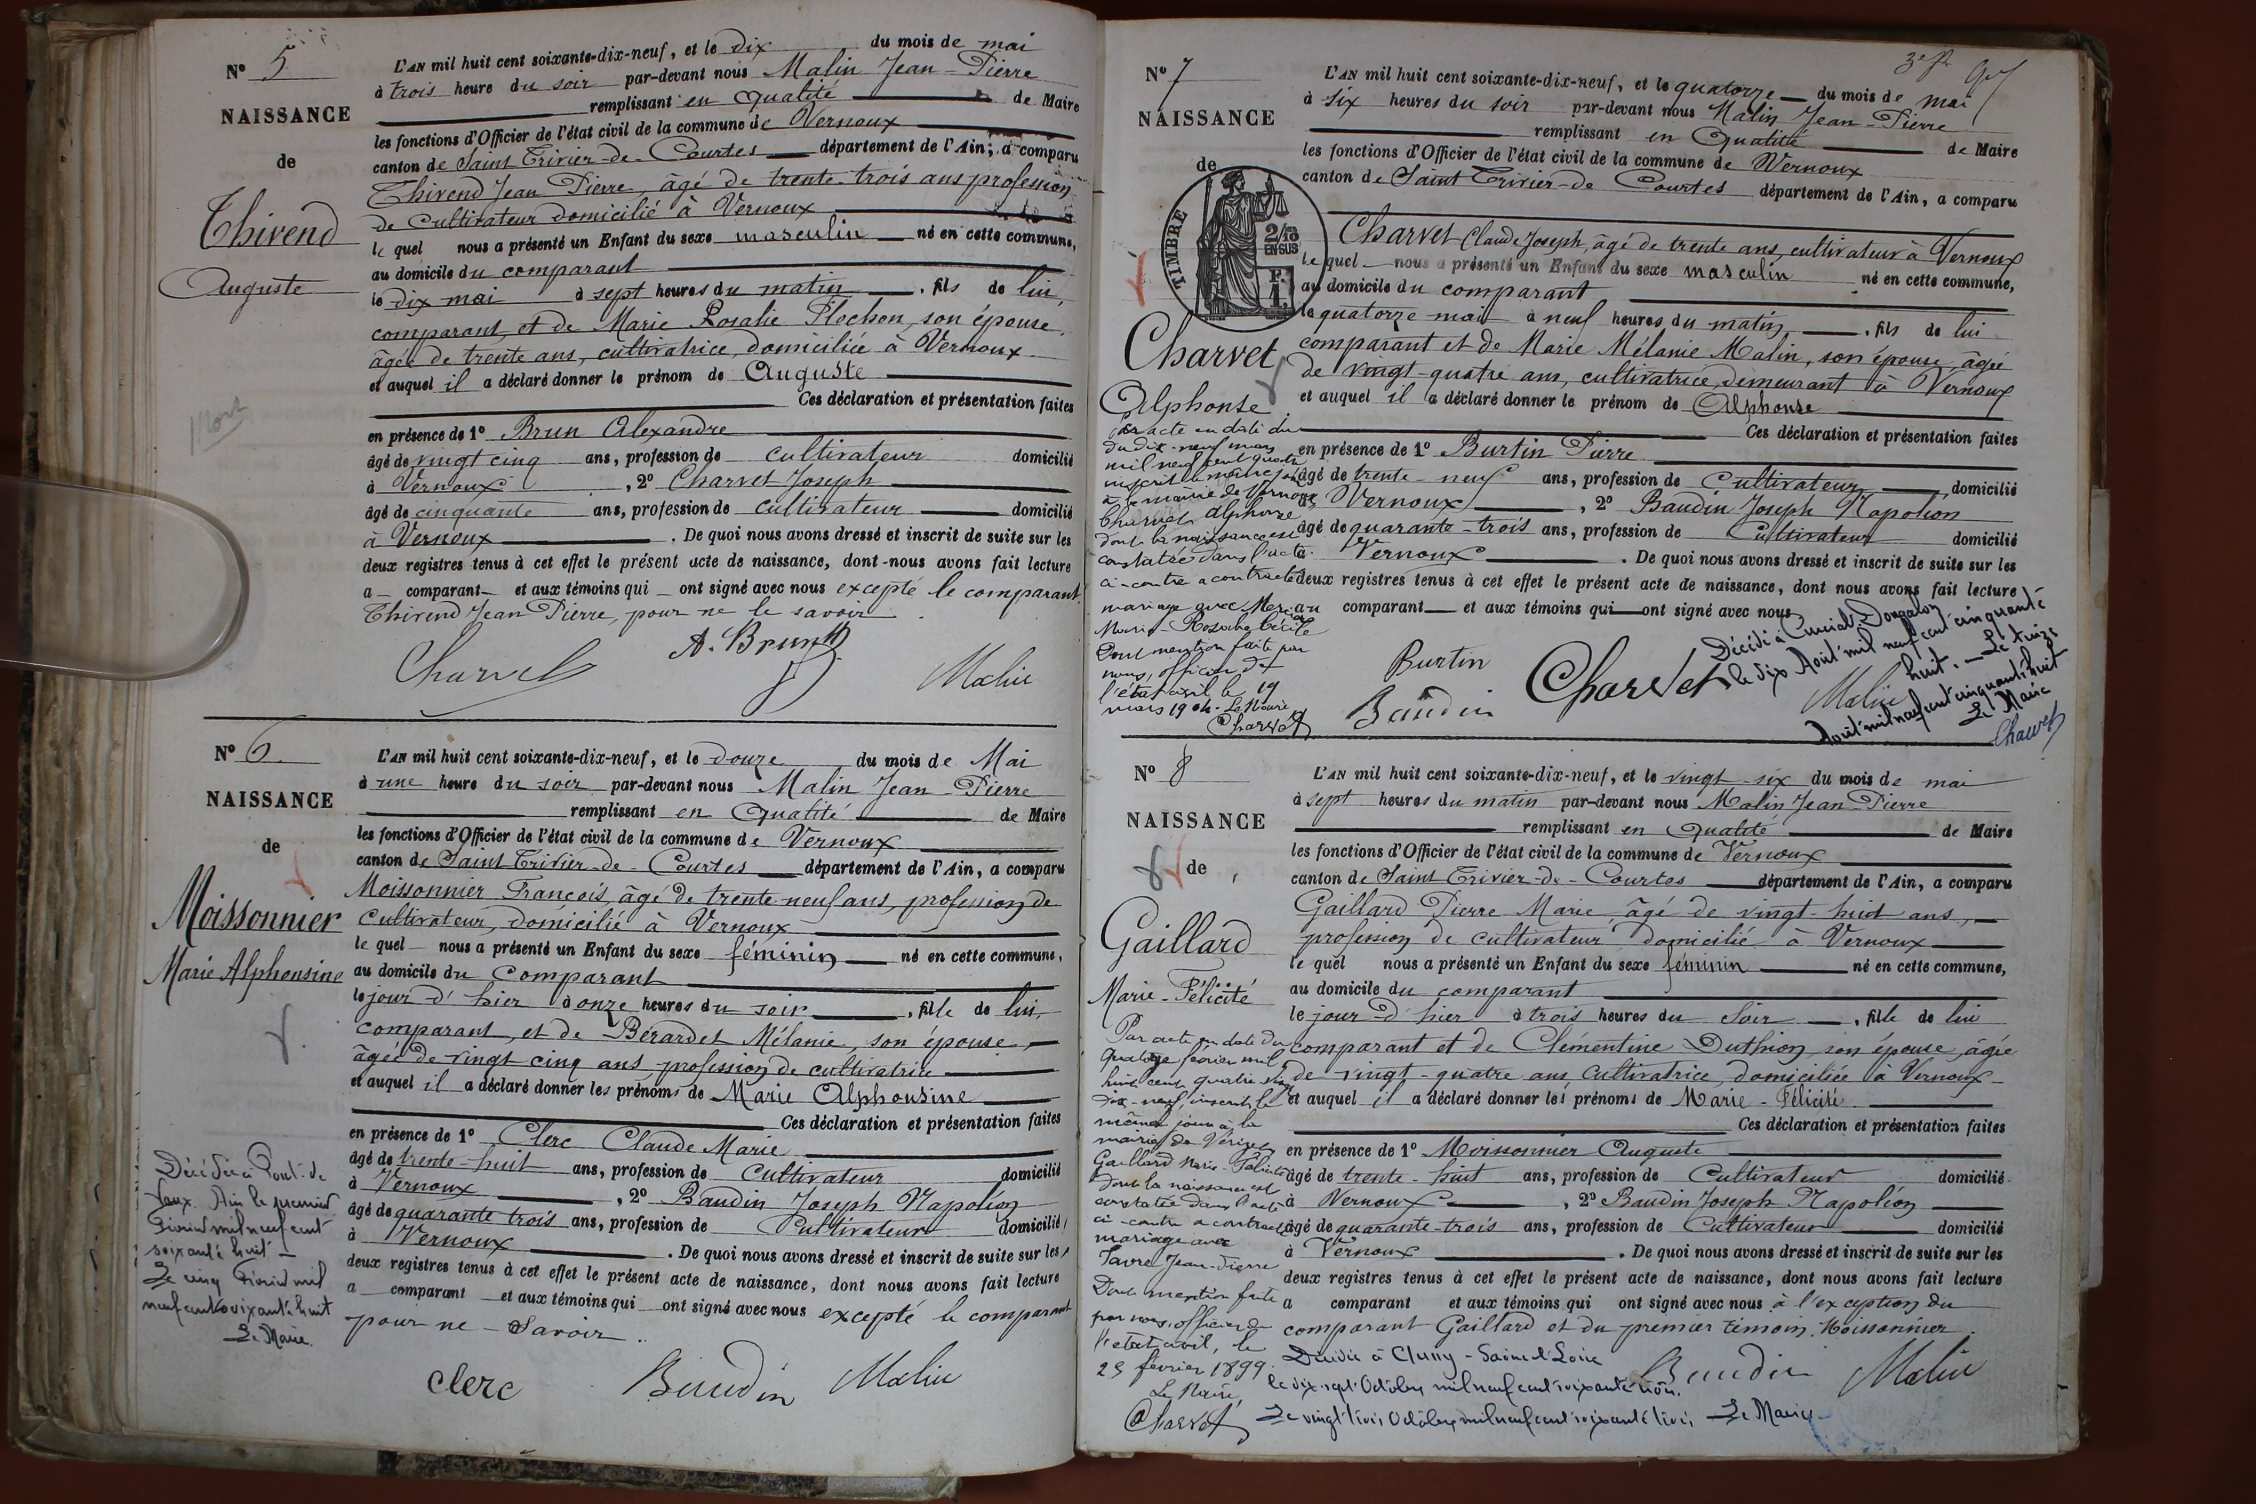 Nº 5
NAISSANCE
de
Thivend
Auguste
L'AN mil huit cent soixante-dix-neuf, et le dix du mois de mai
à trois heure du soir par-devant nous Malin Jean-Pierre
remplissant en Qualité de Maire
les fonctions d'Officier de l'état civil de la commune de Vernoux
canton de Saint Trivier-de-Courtes département de l'Ain, a comparu
Thivend Jean Pierre, âgé de trente-trois ans profession
de cultivateur domicilié à Vernoux
le quel nous a présenté un Enfant du sexe masculin né en cette commune,
au domicile du comparant
le dix mai à sept heures du matin, fils de lui,
comparant, et de Marie Rosalie Flochon, son épouse,
âgée de trente ans, cultivatrice, domiciliée à Vernoux
et auquel il a déclaré donner le prénom de Auguste
Ces déclaration et présentation faites
en présence de 1º Brun Alexandre
âgé de vingt cinq ans, profession de cultivateur domicilié
à Vernoux, 2º Charvet Joseph
âgé de cinquante ans, profession de cultivateur domicilié
à Vernoux. De quoi nous avons dressé et inscrit de suite sur les
deux registres tenus à cet effet le présent acte de naissance, dont nous avons fait lecture
a comparant et aux témoins qui ont signé avec nous excepté le comparant
Thivend Jean Pierre, pour ne le savoir.
Charvet A. Brun Malin
Nº 6
NAISSANCE
de
Moissonnier
Marie Alphonsine
Décédée à Pont-de-
Vaux. Ain le premier
Février mil neuf cent
soixante huit
Le cinq Février mil
neuf cent soixante huit
Le Maire
L'AN mil huit cent soixante-dix-neuf, et le douze du mois de Mai
à une heure du soir par-devant nous Malin Jean-Pierre
remplissant en Qualité de Maire
les fonctions d'Officier de l'état civil de la commune de Vernoux
canton de Saint Trivier-de-Courtes département de l'Ain, a comparu
Moissonnier François, âgé de trente-neuf ans, profession de
cultivateur, domicilié à Vernoux
le quel nous a présenté un Enfant du sexe féminin né en cette commune,
au domicile du comparant
le jour d'hier à onze heures du soir, fille de lui,
comparant, et de Bérardet Mélanie, son épouse,
âgée de vingt cinq ans, profession de cultivatrice
et auquel il a déclaré donner les prénoms de Marie Alphonsine
Ces déclaration et présentation faites
en présence de 1º Clerc Claude Marie
âgé de trente-huit ans, profession de Cultivateur domicilié
à Vernoux, 2º Baudin Joseph Napoléon
âgé de quarante trois ans, profession de Cultivateur domicilié
à Vernoux. De quoi nous avons dressé et inscrit de suite sur les
deux registres tenus à cet effet le présent acte de naissance, dont nous avons fait lecture
a comparant et aux témoins qui ont signé avec nous excepté le comparant
pour ne savoir.
Clerc Baudin Malin
Nº 7
NAISSANCE
de
TIMBRE
2/10
EN SUS
F.
1.
Charvet
Alphonse
par acte en date du
du dix-neuf mars
mil neuf cent quatre
inscrit le même jour
à la mairie de Vernoux
Charvet Alphonse
dont la naissance est
constatée dans l'acte
ci-contre a contracté
mariage avec
Marie-Rosine Cécile
Dont mention faite par
nous, officier de
l'état civil le 19
mars 1904. Le Maire
Charvet
L'AN mil huit cent soixante-dix-neuf, et le quatorze du mois de mai
à six heures du soir par-devant nous Malin Jean-Pierre
remplissant en Qualité de Maire
les fonctions d'Officier de l'état civil de la commune de Vernoux
canton de Saint Trivier-de Courtes département de l'Ain, a comparu
Charvet Claude Joseph, âgé de trente ans, cultivateur à Vernoux
le quel nous a présenté un Enfant du sexe masculin né en cette commune,
au domicile du comparant
le quatorze mai à neuf heures du matin, fils de lui
comparant et de Marie Mélanie Malin, son épouse, âgée
de vingt-quatre ans, cultivatrice, demeurant à Vernoux
et auquel il a déclaré donner le prénom de Alphonse
Ces déclaration et présentation faites
en présence de 1º Burtin Pierre
âgé de trente-neuf ans, profession de Cultivateur, domicilié
à Vernoux, 2º Baudin Joseph Napoléon
âgé de quarante-trois ans, profession de Cultivateur domicilié
à Vernoux. De quoi nous avons dressé et inscrit de suite sur les
deux registres tenus à cet effet le présent acte de naissance, dont nous avons fait lecture
au comparant et aux témoins qui ont signé avec nous
Burtin Charvet Malin
Baudin
Décédé à Curciat-Dongalon
le dix Août mil neuf cent cinquante
huit. - Le treize
Août mil neuf cent cinquante huit
Le Maire
Charvet
Nº 8
NAISSANCE
de
Gaillard
Marie-Félicité
Par acte en date du
quatorze février mil
huit cent quatre vingt
dix-neuf, inscrit le
même jour à la
mairie de
Gaillard Marie-Félicité
dont la naissance est
constatée dans l'acte
ci-contre a contracté
mariage avec
Favre Jean-Pierre
Dont mention faite
par nous, officier de
l'état civil, le
25 février 1899.
Le Maire,
Charvet
L'AN mil huit cent soixante-dix-neuf, et le vingt-six du mois de mai
à sept heures du matin par-devant nous Malin Jean Pierre
remplissant en Qualité de Maire
les fonctions d'Officier de l'état civil de la commune de Vernoux
canton de Saint Trivier-de-Courtes département de l'Ain, a comparu
Gaillard Pierre Marie, âgé de vingt-huit ans,
profession de cultivateur domicilié à Vernoux
le quel nous a présenté un Enfant du sexe féminin né en cette commune,
au domicile du comparant
le jour d'hier à trois heures du soir, fille de lui
comparant et de Clémentine Duthion, son épouse, âgée
de vingt-quatre ans, Cultivatrice, domiciliée à Vernoux
et auquel il a déclaré donner les prénoms de Marie-Félicité
Ces déclaration et présentation faites
en présence de 1º Moissonnier Auguste
âgé de trente-huit ans, profession de Cultivateur domicilié
à Vernoux, 2º Baudin Joseph Napoléon
âgé de quarante-trois ans, profession de Cultivateur domicilié
à Vernoux. De quoi nous avons dressé et inscrit de suite sur les
deux registres tenus à cet effet le présent acte de naissance, dont nous avons fait lecture
a comparant et aux témoins qui ont signé avec nous à l'exception du
comparant Gaillard et du premier témoin Moissonnier.
Baudin Malin
Décédée à Cluny-Saône & Loire
le dix-sept Octobre mil neuf cent soixante trois.
Le vingt trois Octobre mil neuf cent soixante trois, Le Maire